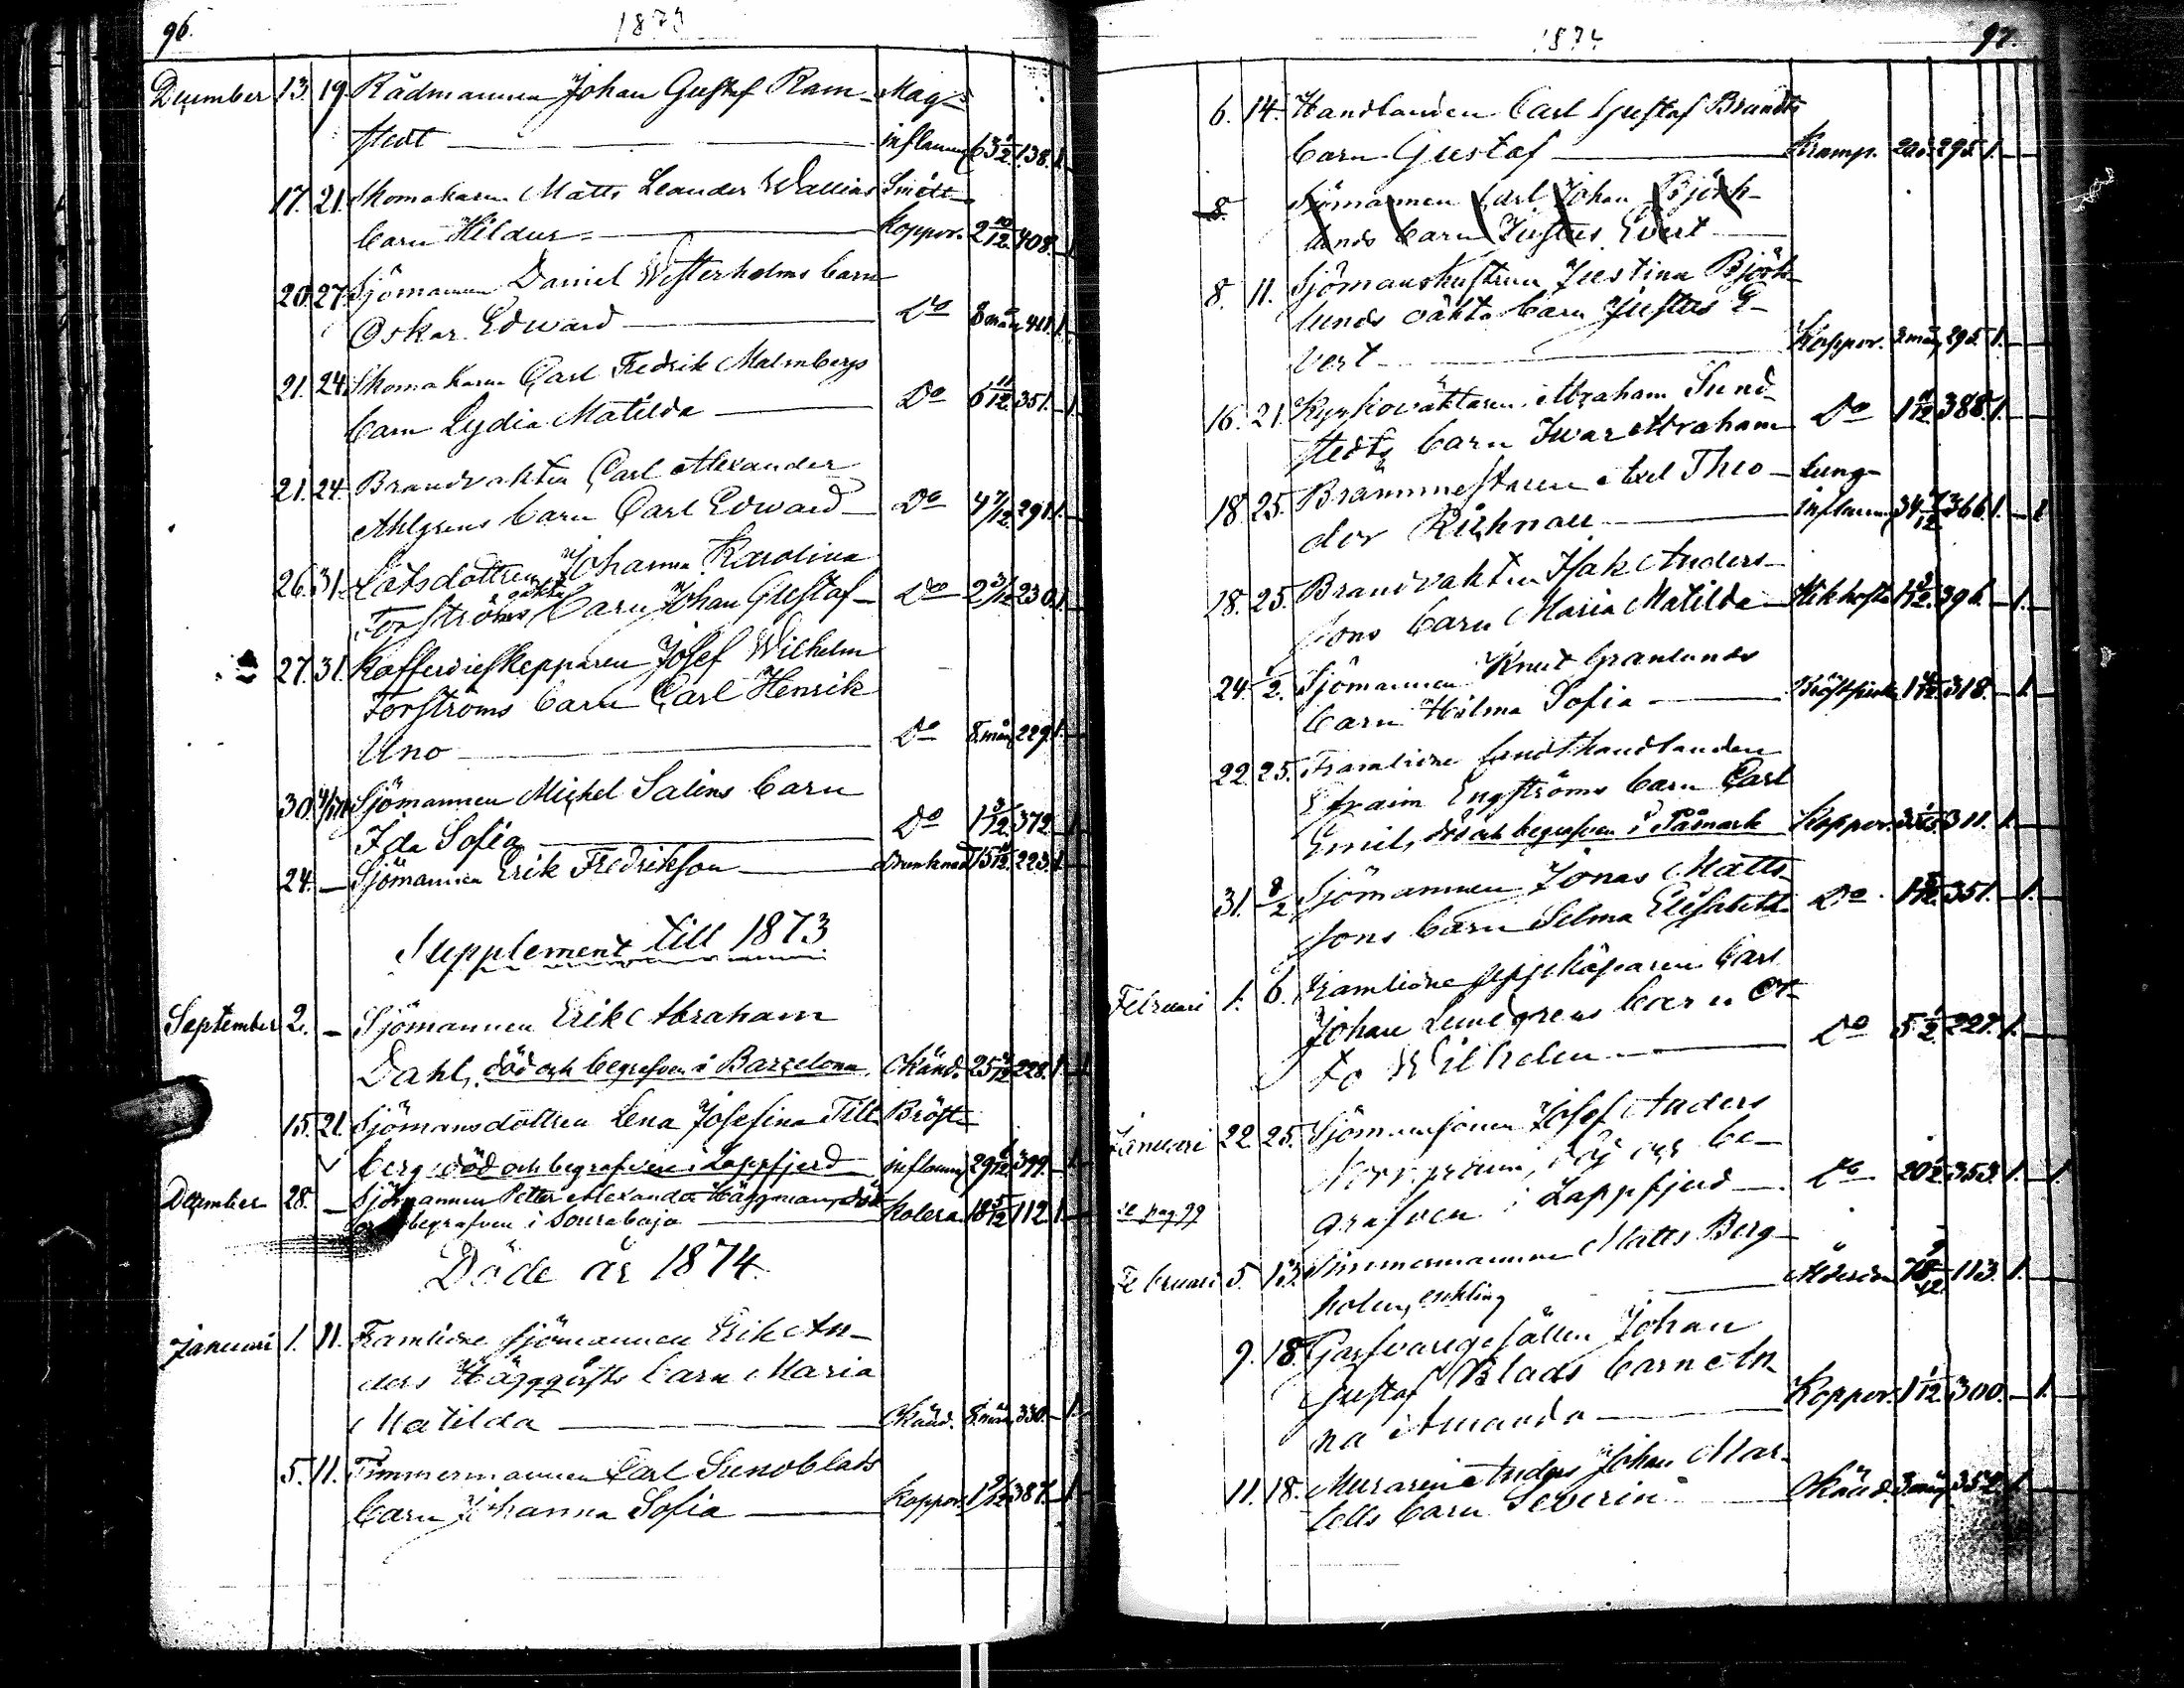 96.
1873
December 13. 19. Rådmannen Johan Gustaf Ram- Mag-
stedt inflamm 63 1/2 138. 1.
17. 21. Skomakaren Matts Leander Wallins Smått-
barn Hildur koppor. 2 10/12 408. 1
20. 27. Sjömannen Daniel Westerholms barn
Oskar Edward Do 8 mån 1.
21. 24. Skomakaren Carl Fredrik Malmbergs
barn Lydia Matilda Do 6 11/12 351. 1.
21. 24. Brandvakten Carl Alexander
Ahlgrens barn Carl Edward Do 4 7/12 291. 1.
26. 31. Lotsdottren Johanna Karolina
Forströms oäkta barn Johan Gustaf Do 2 3/12 230. 1.
27. 31. Kofferdieskepparen Josef Wilhelm
Forströms barn Carl Henrik
Uno Do 8 mån 229. 1.
30. Sjömannen Michel Salins barn
Ida Sofia Do 1 3/12 372. 1.
24. — Sjömannen Erik Fredrikson Drunknad 223. 1.
Supplement till 1873
September 2. — Sjömannen Erik Abraham
Dahl, död och begrafven i Barcelona Okänd. 25 228. 1.
15. 21. Sjömansdottren Lena Josefina Tilt- Bröst-
berg död och begrafven i Lappfjerd inflamm 29 399. 1.
December 28. — Sjömannen Petter Alexander Häggman, död
och begrafven i Sourabaja kolera 18 5/12 112 1.
Döde år 1874.
Januari 1. 11. Framlidne sjömannen Erik An-
ders Häggqvists barn Maria
Matilda Okänd. 8 mån 330. 1.
5. 11. Timmermannen Carl Sundblads
barn Johanna Sofia koppor. 1 387. 1.
1874
97.
6. 14. Handlanden Carl Gustaf Brandts
barn Gustaf Kramp. 295. 1.
8. Sjömannen Carl Johan Björk-
lunds barn Justus Evert
8. 11. Sjömanshustrun Justina Björk-
lunds oäkta barn Justus E-
vert Koppor. 3 mån 295. 1.
16. 21. Kyrkovaktaren Abraham Sund-
stedts barn Iwar Abraham Do 388. 1.
18. 25. Brammestaren Axel Theo- Lung-
dor Kühnau inflamm 34 366. 1.
18. 25. Brandvakten Isak Anders-
sons barn Maria Matilda Kikhosta 396. 1.
24. 1/2. Sjömannen Knut Granlunds
barn Hilma Sofia 318. 1.
22. 25. Framlidne landthandlanden
Efraim Engströms barn Carl
Emil, död och begrafven i Påmark Koppor. 311. 1.
31. 8/2 Sjömannen Jonas Matts-
sons barn Selma Elisabeth Do 351. 1.
Februari 1. 6. Framlidne uppköparen Carl
Johan Lundgrens barn Ot-
to Wilhelm Do 5 1/2 227. 1.
Januari 22. 25. Sjömansonen Josef Anders
Norrgrann, död och be-
grafven i Lappfjerd Do 20 1/2 353. 1.
se pag. 99
Februari 5. 13. Timmermannen Matts Berg-
holm, enkling Ålderdom 113. 1.
9. 18. Garfvaregesällen Johan
Gustaf Blads barn An-
na Amanda Koppor. 1 1/12 300. 1.
11. 18. Muraren Anders Johan Mar-
tells barn Severin Okänd. 3 mån 352. 1.